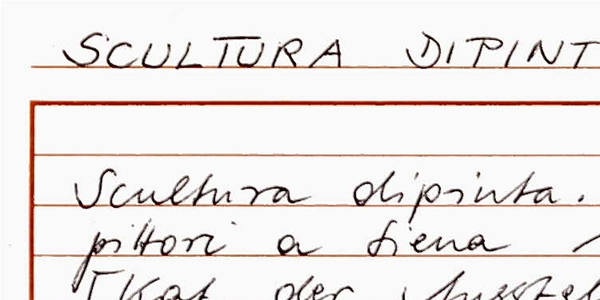 SCULTURA DIPINT
Scultura dipinta.
pittori a Siena
[Kat der